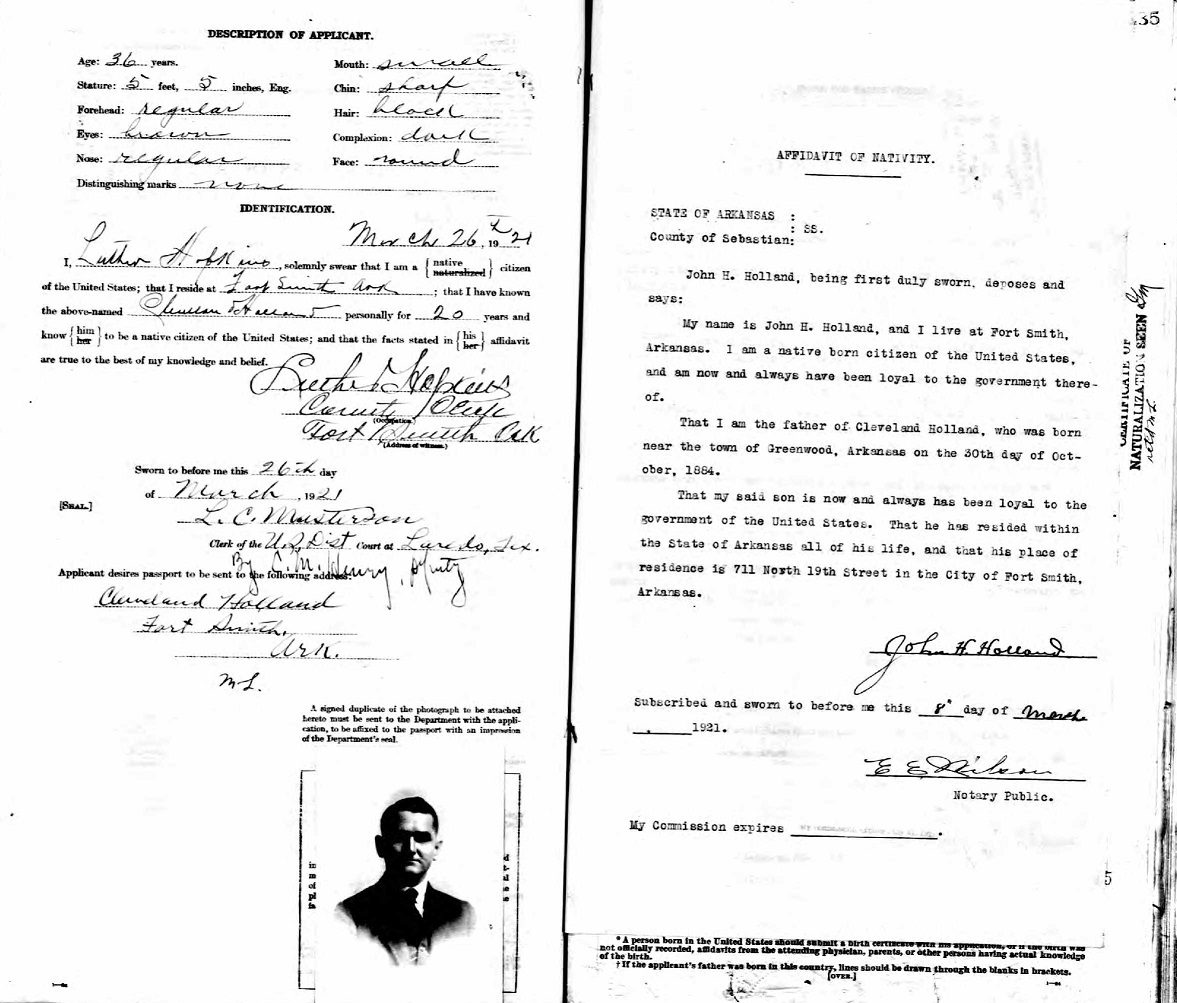 DESCRIPTION OF APPLICANT.
Age: 36 years.
Mouth: small
Stature: 5 feet, 5 inches, Eng.
Chin: sharp
Forehead: regular
Hair: black
Eyes: brown
Complexion: dark
Nose: regular
Face: round
Distinguishing marks none
IDENTIFICATION.
March 26th, 1921
I, Luther Hopkins, solemnly swear that I am a {native naturalized} citizen
of the United States; that I reside at Fort Smith Ark; that I have known
the above-named Cleveland Holland personally for 20 years and
know {him her} to be a native citizen of the United States; and that the facts stated in {his her} affidavit
are true to the best of my knowledge and belief.
Luther Hopkins
County Clerk
(Occupation.)
Fort Smith Ark
(Address of witness.)
Sworn to before me this 26th day
of March, 1921
[SEAL.]
L. C. Masterson
Clerk of the U.S. Dist Court at Laredo, Tex.
By M. Henry, Dputy
Applicant desires passport to be sent to the following address:
Cleveland Holland
Fort Smith,
Ark.
M L.
A signed duplicate of the photograph to be attached
hereto must be sent to the Department with the appli-
cation, to be affixed to the passport with an impression
of the Department's seal.
35
AFFIDAVIT OF NATIVITY.
STATE OF ARKANSAS :
: SS.
County of Sebastian:
John H. Holland, being first duly sworn, deposes and
says:
My name is John H. Holland, and I live at Fort Smith,
Arkansas. I am a native born citizen of the United States,
and am now and always have been loyal to the government there-
of.
That I am the father of Cleveland Holland, who was born
near the town of Greenwood, Arkansas on the 30th day of Oct-
ober, 1884.
That my said son is now and always has been loyal to the
government of the United States. That he has resided within
the State of Arkansas all of his life, and that his place of
residence is 711 North 19th Street in the City of Fort Smith,
Arkansas.
John H. Holland
Subscribed and sworn to before me this 8" day of March
, 1921.
E E Wilson
Notary Public.
My Commission expires .
CERTIFICATE OF
NATURALIZATION SEEN
5
* A person born in the United States should submit a birth certificate with his application, or if the birth was
not officially recorded, affidavits from the attending physician, parents, or other persons having actual knowledge
of the birth.
† If the applicant's father was born in this country, lines should be drawn through the blanks in brackets.
[OVER.]